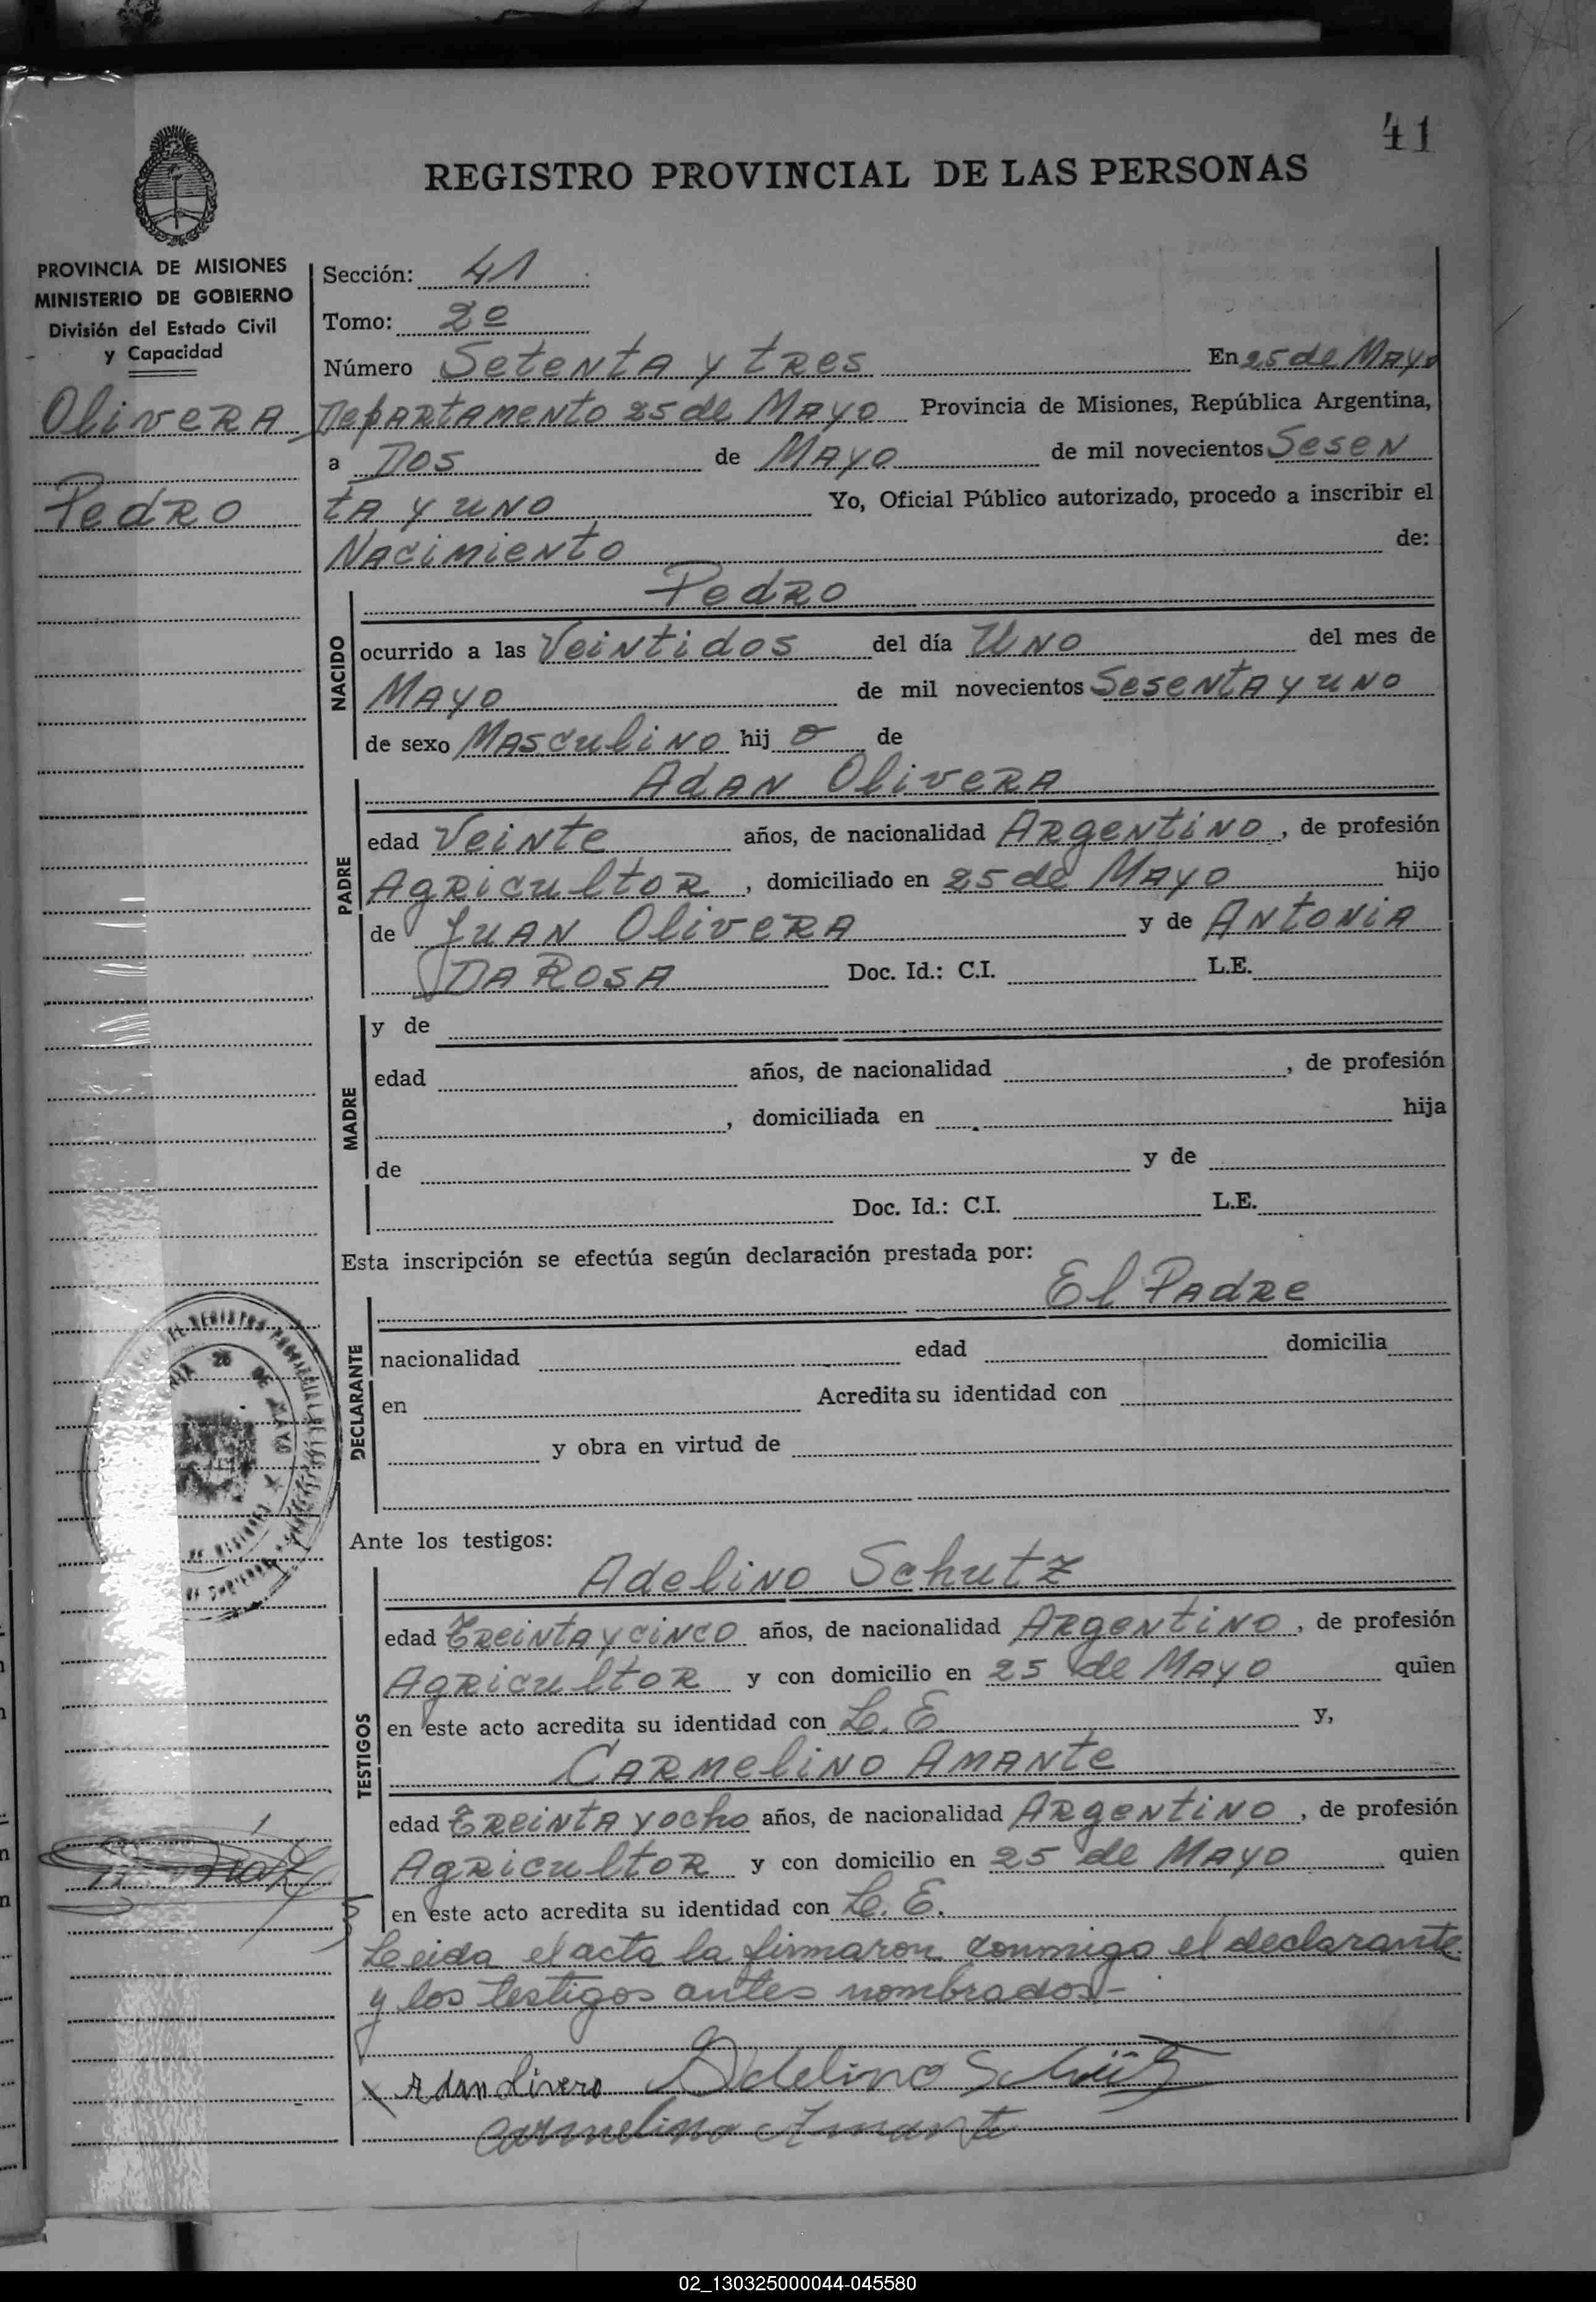 41
REGISTRO PROVINCIAL DE LAS PERSONAS
PROVINCIA DE MISIONES
MINISTERIO DE GOBIERNO
División del Estado Civil
y Capacidad
Olivera
Pedro
Sección: 41
Tomo: 2º
Número Setenta y tres En 25 de Mayo
Departamento 25 de Mayo Provincia de Misiones, República Argentina,
a Dos de Mayo de mil novecientos Sesen
ta y uno Yo, Oficial Público autorizado, procedo a inscribir el
Nacimiento de:
Pedro
NACIDO
ocurrido a las Veintidos del día Uno del mes de
Mayo de mil novecientos Sesenta y uno
de sexo Masculino hij o de
Adan Olivera
PADRE
edad Veinte años, de nacionalidad Argentino, de profesión
Agricultor, domiciliado en 25 de Mayo hijo
de Juan Olivera y de Antonia
Da Rosa Doc. Id.: C.I. L.E.
MADRE
y de
edad años, de nacionalidad , de profesión
, domiciliada en hija
de y de
Doc. Id.: C.I. L.E.
Esta inscripción se efectúa según declaración prestada por:
El Padre
DECLARANTE
nacionalidad edad domicilia
en Acredita su identidad con
y obra en virtud de
Ante los testigos:
Adelino Schutz
TESTIGOS
edad Treinta y cinco años, de nacionalidad Argentino, de profesión
Agricultor y con domicilio en 25 de Mayo quien
en este acto acredita su identidad con L. E. y,
Carmelino Amante
edad Treinta y ocho años, de nacionalidad Argentino, de profesión
Agricultor y con domicilio en 25 de Mayo quien
en este acto acredita su identidad con L. E.
Leida el acta la firmaron conmigo el declarante
y los testigos antes nombrados-
x Adan Livero Adelino Schütz
Carmelino Amante
02_130325000044-045580